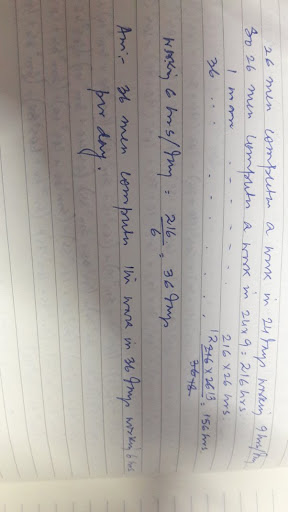 26 men complete a work in 24 days working 9 hrs/day
So 26 men complete a work in 24 x 9 = 216 hrs
1 man .. .. .. .. .. 216 x 26 hrs.
36 .. .. .. .. .. .. 216 x 26 / 36 = 156 hrs
working 6 hrs/day = 216/6 = 36 days
Ans:- 36 men complete the work in 36 days working 6 hrs
per day.